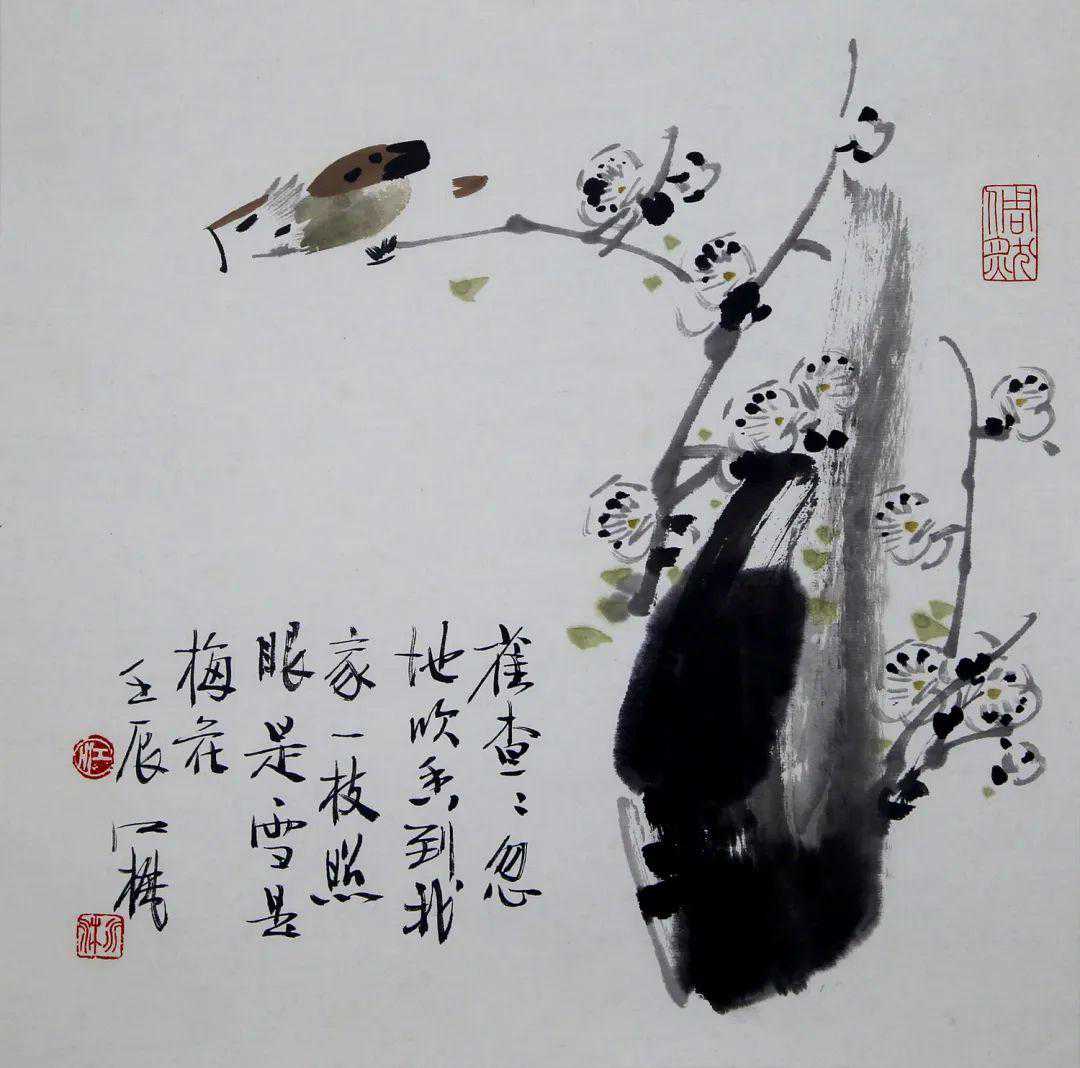 雀查〻忽
地吹香到我
家一枝照
眼是雪是
梅花
壬辰 江